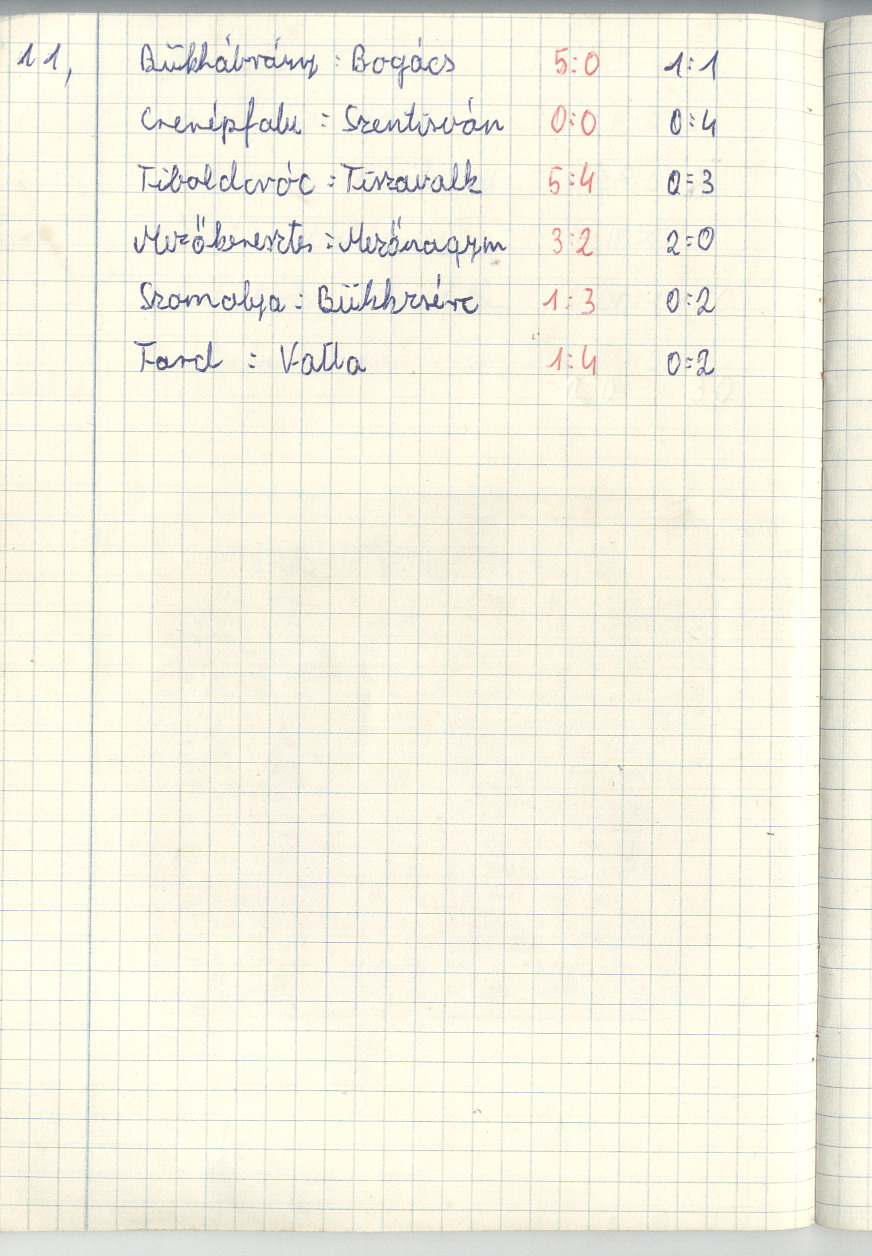 11, Bükkábrány : Bogács 5:0 1:1
Cserépfalu : Szentistván 0:0 0:4
Tibolddaróc : Tiszavalk 5:4 0:3
Mezőkeresztes : Mezőnagym 3:2 2:0
Szomolya : Bükkzsérc 1:3 0:2
Tard : Vatta 1:4 0:2